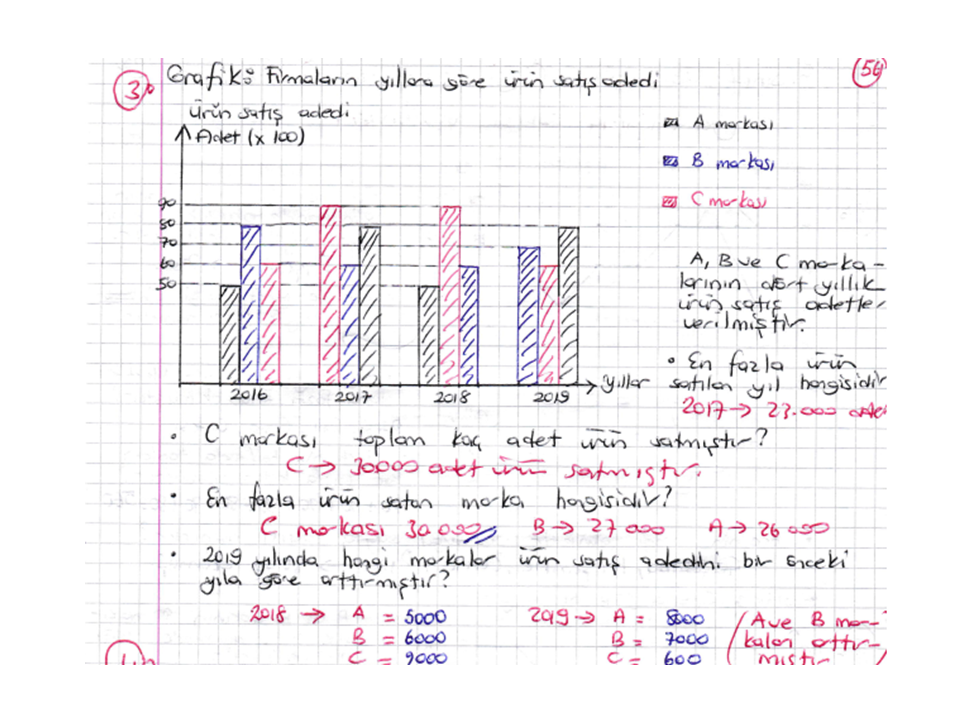 3. Grafik: Firmaların yıllara göre ürün satış adedi
56
ürün satış adedi
Adet (x 100)
A markası
B markası
C markası
90
80
70
60
50
2016 2017 2018 2019 yıllar
A, B ve C marka-
larının dört yıllık
ürün satış adetler
verilmiştir.
• En fazla ürün
satılan yıl hangisidir
2017 → 23.000 adet
• C markası toplam kaç adet ürün satmıştır?
C → 30000 adet ürün satmıştır.
• En fazla ürün satan marka hangisidir?
C markası 30 000 B → 27 000 A → 26 000
• 2019 yılında hangi markalar ürün satış adedini bir önceki
yıla göre arttırmıştır?
2018 → A = 5000 2019 → A = 8000 / A ve B mar-
B = 6000 B = 7000 / kaları arttır-
C = 9000 C = 600 / mıştır